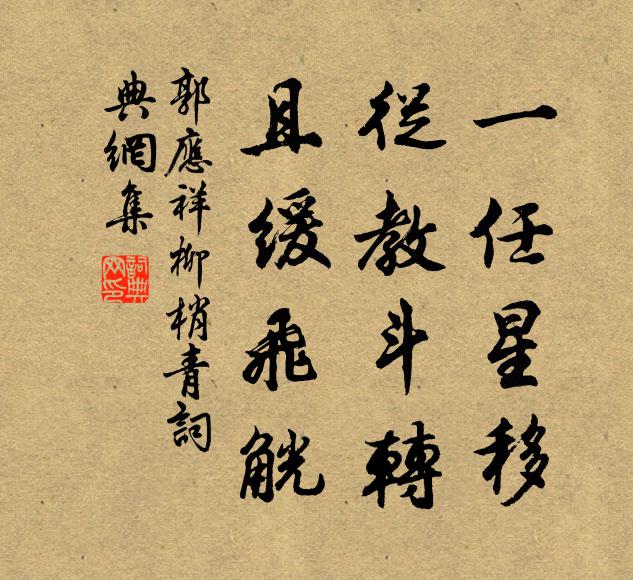 一任星移
從教斗轉
且緩飛觥
郭應祥柳梢青詞
典網集
詞典網印